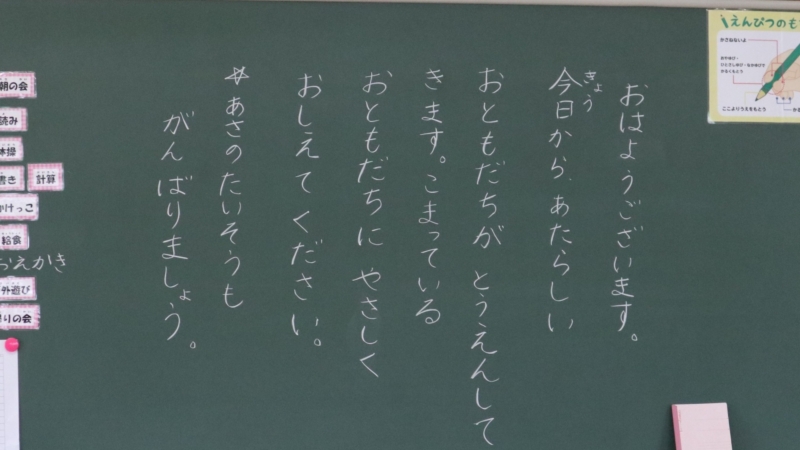 おはようございます。
今日から、あたらしい
きょう
おともだちが とうえんして
きます。こまっている
おともだちに やさしく
おしえてください。
*あさのたいそうも
がんばりましょう。
えんぴつのも
かさねないよ
おやゆび・
ひとさしゆび・なかゆびで
かるくもとう
ここよりうえをもとう
朝の会
読み
体操
書き
計算
かけっこ
給食
おえかき
外遊び
りの会